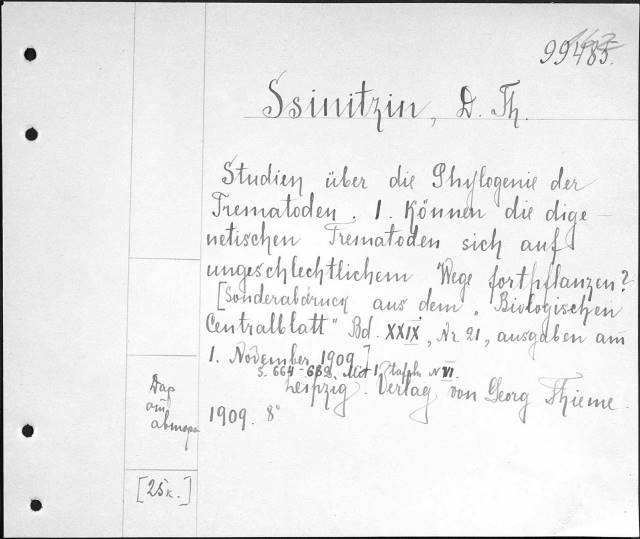 99485.
Ssinitzin, D. Th.
Studien über die Phylogenie der
Trematoden. 1. Können die dige-
netischen Trematoden sich auf
ungeschlechtlichem Wege fortpflanzen?
[Sonderabdrucq aus dem „Biologischen
Centralblatt" Bd. XXIX, Nr. 21, ausgaben am
1. November 1909.]
S. 664-682. Mit 1 tafeln N VI.
Leipzig. Verlag von Georg Thieme.
1909. 8°
Дар
автора
[25к.]